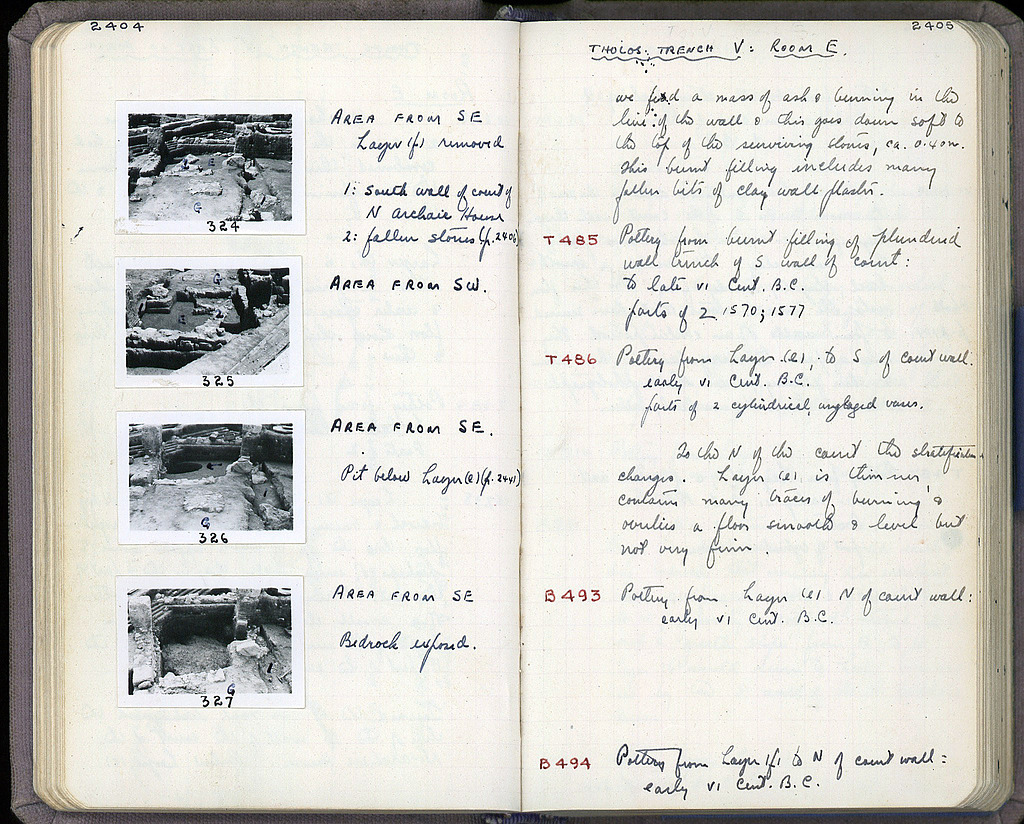 2404
AREA FROM SE
Layer (f) removed
1: South wall of court of
N Archaic House
2: fallen stones (p. 2406)
1 E
G
324
AREA FROM SW.
G
1 2
325
AREA FROM SE.
Pit below Layer (e) (p. 2441)
1
G
326
AREA FROM SE
Bedrock exposed.
1
G
327
2405
THOLOS: TRENCH V: ROOM E.
we find a mass of ash & burning in the
line of the wall & this goes down soft to
the top of the surviving stones, ca. 0.40m.
This burnt filling includes many
fallen bits of clay wall plaster.
T 485 Pottery from burnt filling of plundered
wall trench of S wall of court:
to late VI Cent. B.C.
parts of Σ 1570; 1577
T 486 Pottery from Layer (e), to S of court wall:
early VI Cent. B.C.
parts of 2 cylindrical, unglazed vases.
To the N of the court the stratification
changes. Layer (e) is thinner,
contains many traces of burning &
overlies a floor smooth & level but
not very firm.
B 493 Pottery from Layer (e) N of court wall:
early VI Cent. B.C.
B 494 Pottery from Layer (f) to N of court wall:
early VI Cent. B.C.